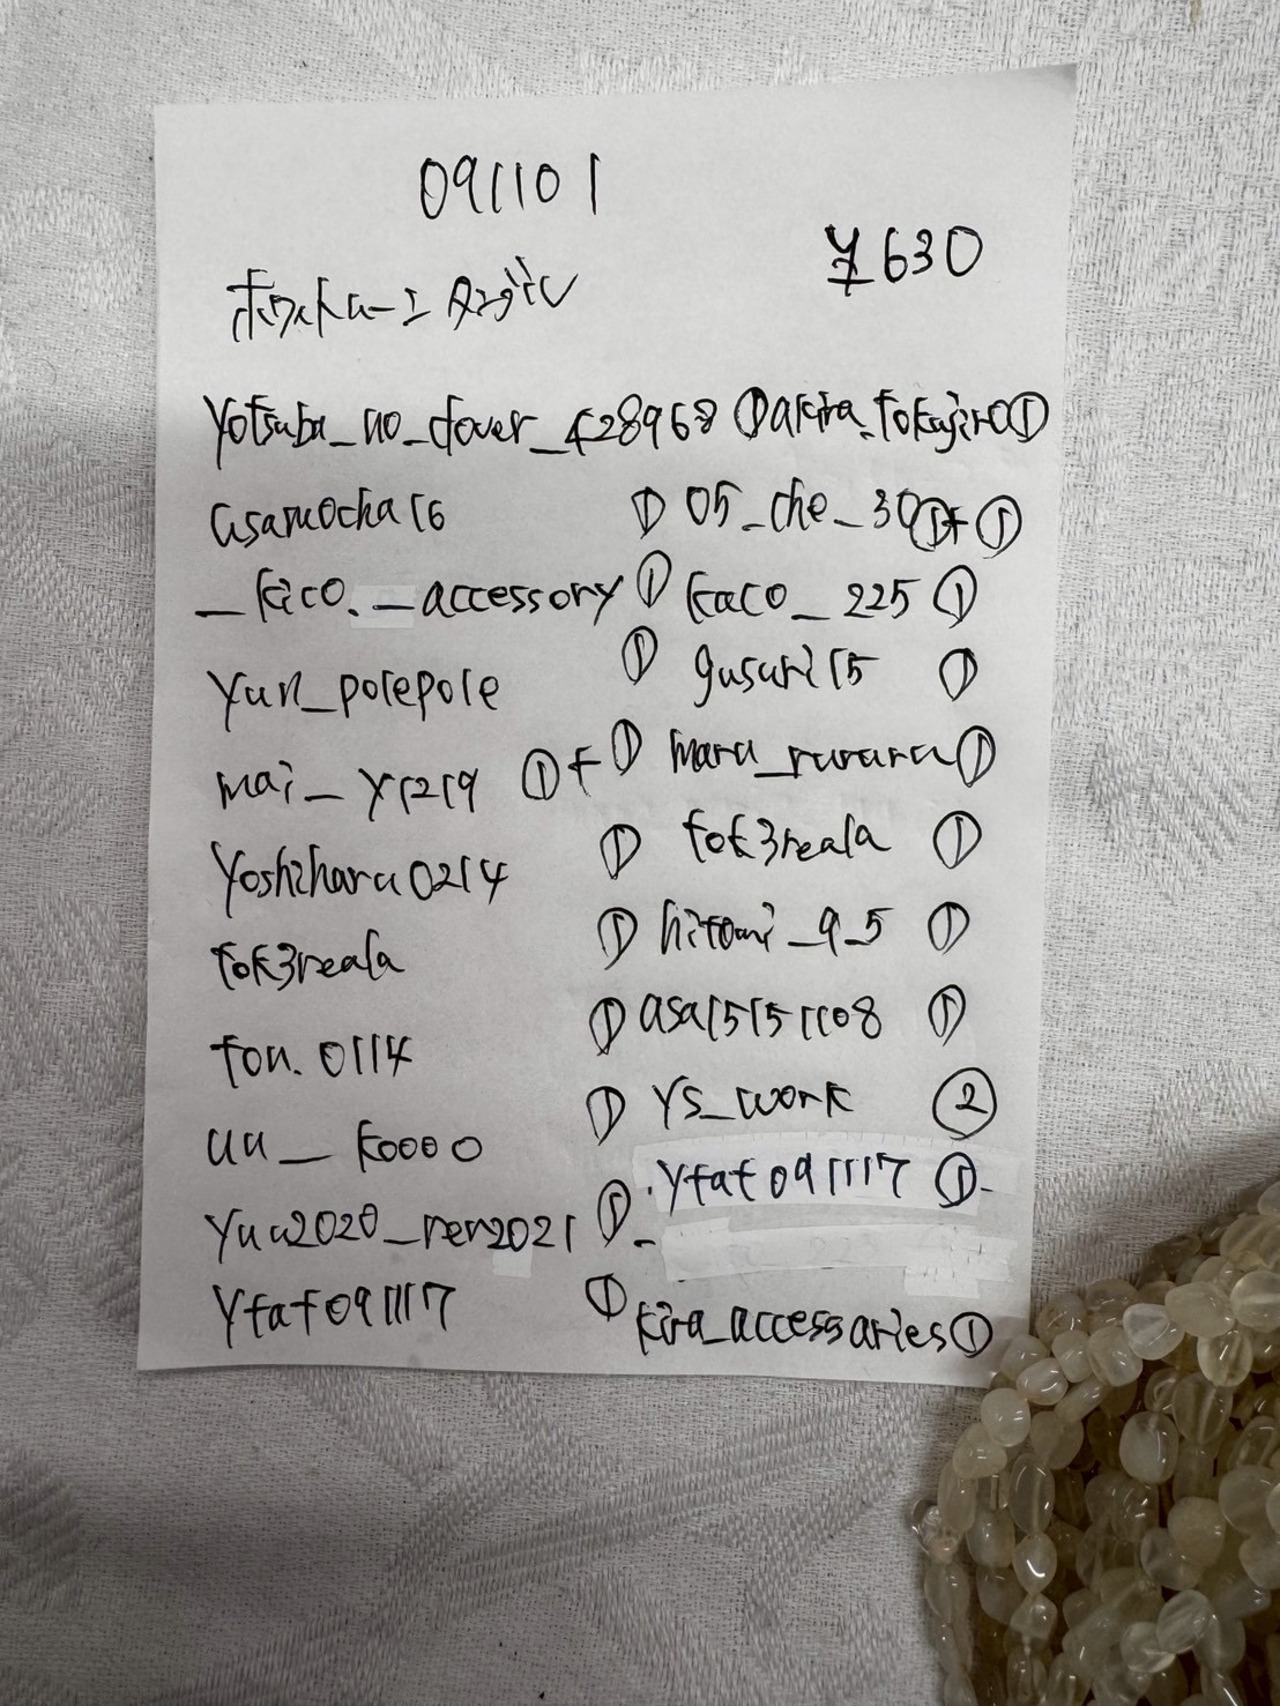 091101
¥630
ホワイトムーン タンブル
yotsuba_no_clover_428968 ① akira.tokujiro ①
asamocha16 ① 05_che_30 ①+①
_kico._accessory ① kaco_225 ①
yun_polepole ① gusuri15 ①
mai_y1219 ①+① maru_ruraru ①
yoshiharu0214 ① tok3reala ①
tok3reala ① hitomi_9_5 ①
fou.0114 ① asa15151108 ①
uu_koooo ① ys_work ②
yuu2020_ren2021 ① ytat091117 ①
ytat091117 ① kira_accessaries ①